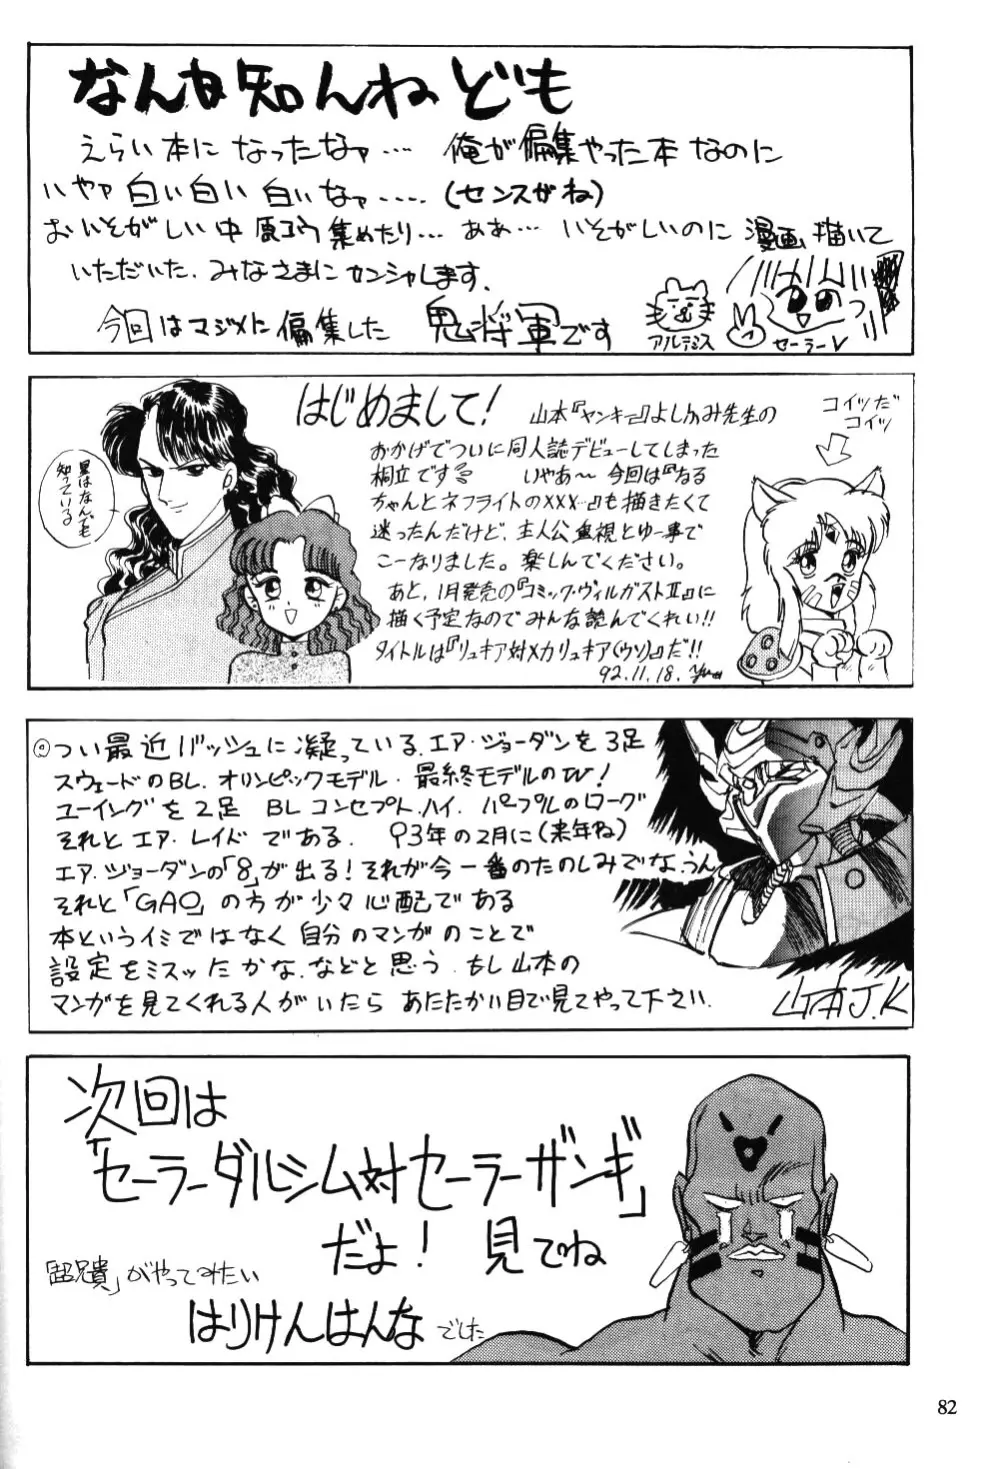 なんか知んねども
えらい本になったなァ… 俺が偏集やった本なのに
いやァ白い白い白いなァ…‥(センスがね)
おいそがしい中原コウ集めたり… ああ… いそがしいのに漫画描いて
いただいた、みなさまにカンシャします。
今回はマジメに偏集した 鬼将軍です
アルテミス
セーラーV
はじめまして!
星はなんでも
知っている
山本『ヤンキー』よしふみ先生の
おかげでついに同人誌デビューしてしまった
桐立です いやあ〜今回は『なる
ちゃんとネフライトのXXX…』も描きたくて
迷ったんだけど、主人公重視とゆー事で
こーなりました。楽しんでください。
あと、1月発売の『コミック・ヴィルガストⅡ』に
描く予定なのでみんな読んでくれい!!
タイトルは『リュキア対メカリュキア(ウソ)』だ!!
92.11.18.
コイツだ
コイツ
つい最近バッシュに凝っている、エア・ジョーダンを3足
スウェードのBL、オリンピックモデル、最終モデルのW!
ユーイングを2足 BLコンセプト、ハイ、パープルのローグ
それとエア・レイドである。 93年の2月に(来年ね)
エア・ジョーダンの「8」が出る!それが今一番のたのしみでな、うん
それと「GAO」の方が少々心配である
本というイミではなく自分のマンガのことで
設定をミスッたかな、などと思う。もし山本の
マンガを見てくれる人がいたら あたたかい目で見てやって下さい.
山本J.K
次回は
「セーラーダルシム対セーラーザンギ」
だよ! 見てね
「超兄貴」がやってみたい
はりけんはんな でした
82